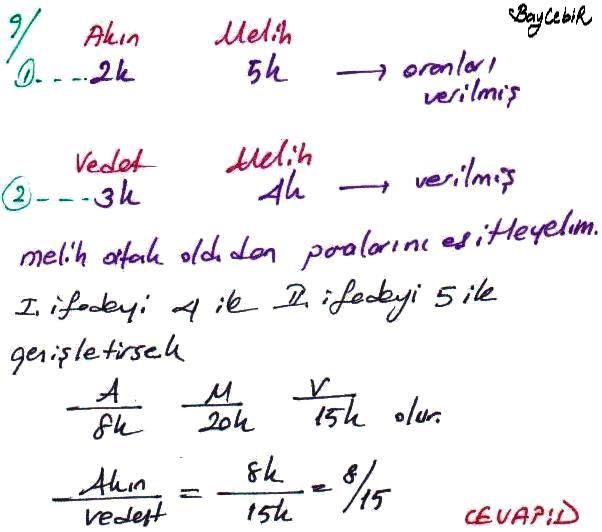 9/ BayCebir
Akın Melih
①....2k 5k → oranları
verilmiş
Vedat Melih
②---3k 4k → verilmiş
melih ortak olduğdan paralarını eşitleyelim.
I. ifadeyi 4 ile II. ifadeyi 5 ile
genişletirsek
A/8k M/20k V/15k olur.
Akın/vedat = 8k/15k = 8/15
CEVAP:D